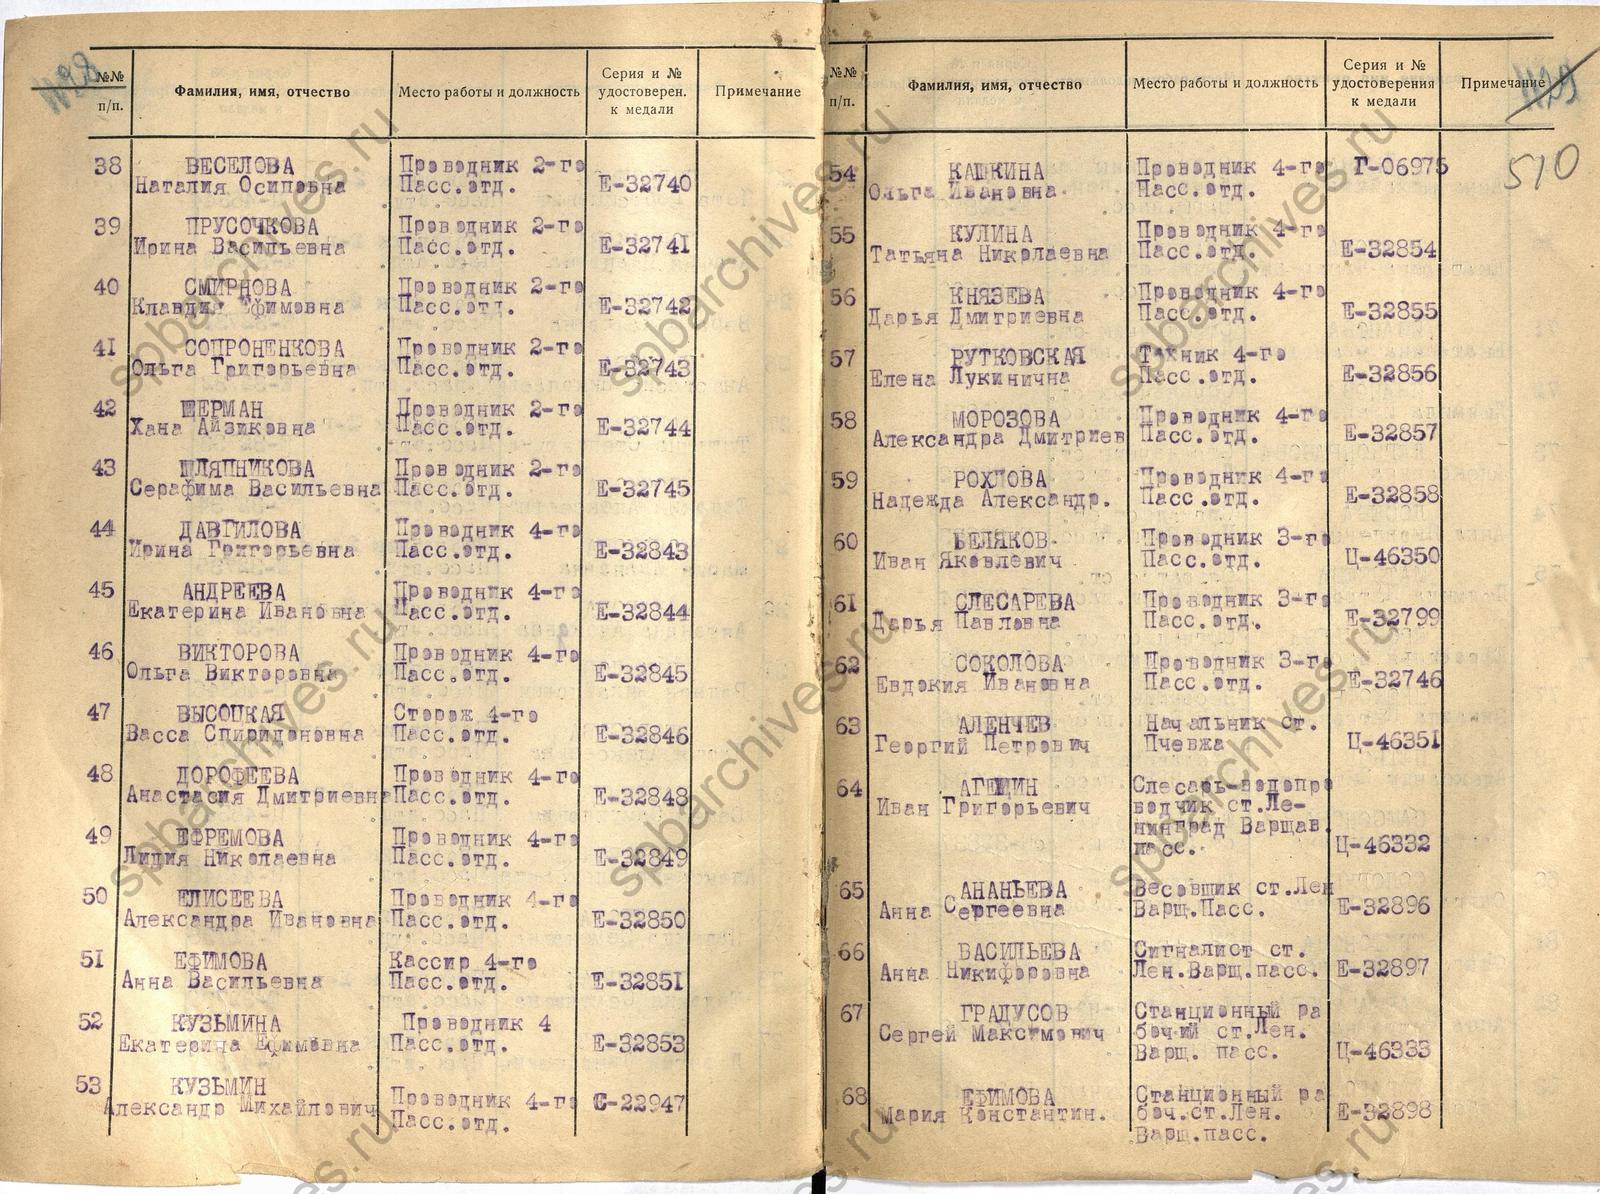 №№ п/п.
Фамилия, имя, отчество
Место работы и должность
Серия и № удостоверен. к медали
Примечание
38 ВЕСЕЛОВА Проводник 2-го
Наталия Осиповна Пасс.отд. Е-32740
39 ПРУСОЧКОВА Проводник 2-го
Ирина Васильевна Пасс.отд. Е-32741
40 СМИРНОВА Проводник 2-го
Клавдия Ефимовна Пасс.отд. Е-32742
41 СОПРОНЕНКОВА Проводник 2-го
Ольга Григорьевна Пасс.отд. Е-32743
42 ШЕРМАН Проводник 2-го
Хана Айзиковна Пасс.отд. Е-32744
43 ШЛЯПНИКОВА Проводник 2-го
Серафима Васильевна Пасс.отд. Е-32745
44 ДАВГИЛОВА Проводник 4-го
Ирина Григорьевна Пасс.отд. Е-32843
45 АНДРЕЕВА Проводник 4-го
Екатерина Ивановна Пасс.отд. Е-32844
46 ВИКТОРОВА Проводник 4-го
Ольга Викторовна Пасс.отд. Е-32845
47 ВЫСОЦКАЯ Сторож 4-го
Васса Спиридоновна Пасс.отд. Е-32846
48 ДОРОФЕЕВА Проводник 4-го
Анастасия Дмитриевна Пасс.отд. Е-32848
49 ЕФРЕМОВА Проводник 4-го
Лидия Николаевна Пасс.отд. Е-32849
50 ЕЛИСЕЕВА Проводник 4-го
Александра Ивановна Пасс.отд. Е-32850
51 ЕФИМОВА Кассир 4-го
Анна Васильевна Пасс.отд. Е-32851
52 КУЗЬМИНА Проводник 4
Екатерина Ефимовна Пасс.отд. Е-32853
53 КУЗЬМИН Проводник 4-го С-22947
Александр Михайлович Пасс.отд.
№№ п/п.
Фамилия, имя, отчество
Место работы и должность
Серия и № удостоверения к медали
Примечание
510
54 КАШКИНА Проводник 4-го Г-06975
Ольга Ивановна Пасс.отд.
55 КУЛИНА Проводник 4-го
Татьяна Николаевна Пасс.отд. Е-32854
56 КНЯЗЕВА Проводник 4-го
Дарья Дмитриевна Пасс.отд. Е-32855
57 РУТКОВСКАЯ Техник 4-го
Елена Лукинична Пасс.отд. Е-32856
58 МОРОЗОВА Проводник 4-го
Александра Дмитриев Пасс.отд. Е-32857
59 РОХЛОВА Проводник 4-го
Надежда Александр. Пасс.отд. Е-32858
60 БЕЛЯКОВ Проводник 3-го
Иван Яковлевич Пасс.отд. Ц-46350
61 СЛЕСАРЕВА Проводник 3-го
Дарья Павловна Пасс.отд. Е-32799
62 СОКОЛОВА Проводник 3-го
Евдокия Ивановна Пасс.отд. Е-32746
63 АЛЕНЧЕВ Начальник ст.
Георгий Петрович Пчевжа Ц-46351
64 АГЕШИН Слесарь-водопро
Иван Григорьевич водчик ст.Ле-
нинград Варшав.
пасс. Ц-46332
65 АНАНЬЕВА Весовщик ст.Лен
Анна Сергеевна Варш.Пасс. Е-32896
66 ВАСИЛЬЕВА Сигналист ст.
Анна Никифоровна Лен.Варш.пасс. Е-32897
67 ГРАДУСОВ Станционный ра
Сергей Максимович бочий ст.Лен.
Варш. пасс. Ц-46333
68 ЕФИМОВА Станционный ра
Мария Константин. боч.ст.Лен. Е-32898
Варш.пасс.
spbarchives.ru